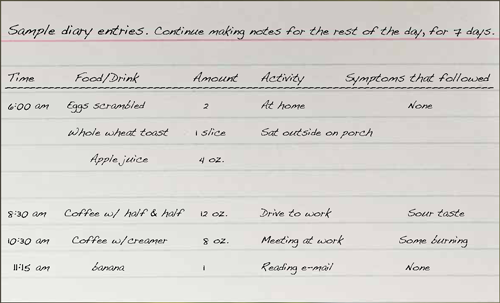 Sample diary entries. Continue making notes for the rest of the day, for 7 days.
Time Food/Drink Amount Activity Symptoms that followed
6:00 am Eggs scrambled 2 At home None
Whole wheat toast 1 slice Sat outside on porch
Apple juice 4 oz.
8:30 am Coffee w/ half & half 12 oz. Drive to work Sour taste
10:30 am Coffee w/creamer 8 oz. Meeting at work Some burning
11:15 am banana 1 Reading e-mail None